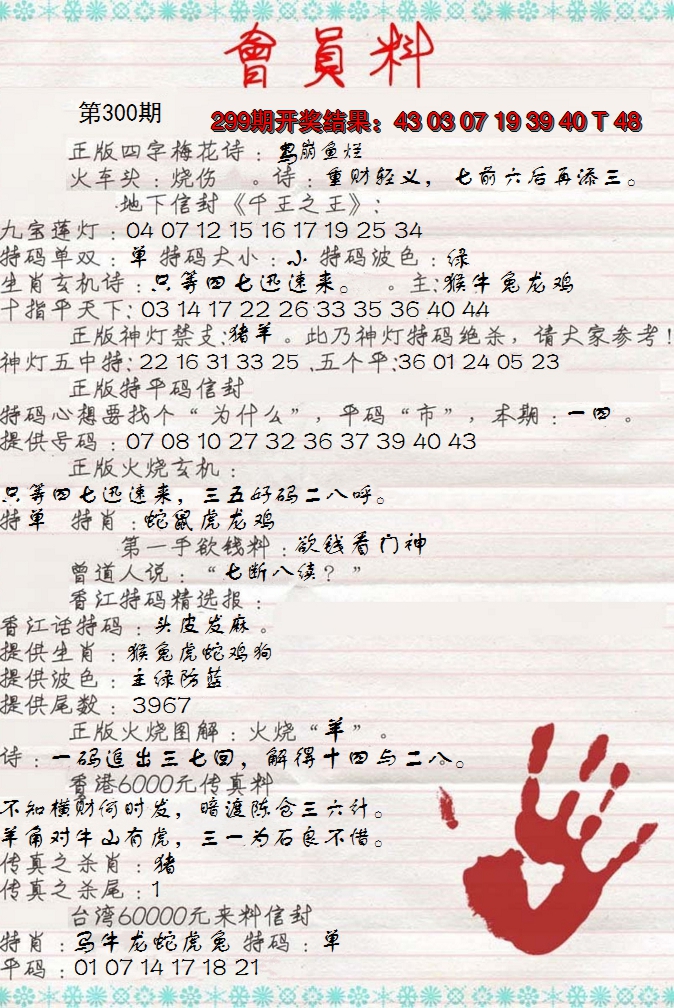 會員料
第300期
299期开奖结果：43 03 07 19 39 40 T 48
正版四字梅花诗：鸟崩鱼烂
火车头：烧伤 。诗：重财轻义，七前六后再添三。
地下信封《千王之王》：
九宝莲灯：04 07 12 15 16 17 19 25 34
特码单双：单 特码大小：小 特码波色：绿
生肖玄机诗：只等四七迅速来。 。主:猴牛兔龙鸡
十指平天下: 03 14 17 22 26 33 35 36 40 44
正版神灯禁支:猪羊。此乃神灯特码绝杀，请大家参考!
神灯五中特: 22 16 31 33 25 .五个平:36 01 24 05 23
正版特平码信封
特码心想要找个“为什么”，平码“市”，本期：一四。
提供号码：07 08 10 27 32 36 37 39 40 43
正版火烧玄机：
只等四七迅速来，三五好码二八呼。
特单 特肖：蛇鼠虎龙鸡
第一手欲钱料：欲钱看门神
曾道人说：“七断八续？”
香江特码精选报：
香江话特码：头皮发麻。
提供生肖：猴兔虎蛇鸡狗
提供波色：主绿防蓝
提供尾数：3967
正版火烧图解：火烧“羊”。
诗：一码追出三七回，解得十四与二八。
香港6000元传真料
不知横财何时发，暗渡陈仓三六计。
羊角对牛山有虎，三一为石良不借。
传真之杀肖：猪
传真之杀尾：1
台湾60000元来料信封
特肖：马牛龙蛇虎兔 特码：单
平码：01 07 14 17 18 21